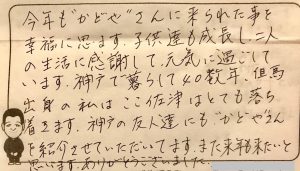 今年も"かどや"さんに来られた事を
幸福に思ます。子供達も成長し、二人
の生活に感謝して、元気に過ごして
います。神戸で暮らして40数年、但馬
出身の私はここ佐津はとても落ち
着きます。神戸の友人達にも"かどや"さん
を紹介させていただいてます。また来年も来たいと
思います。ありがとうございました。